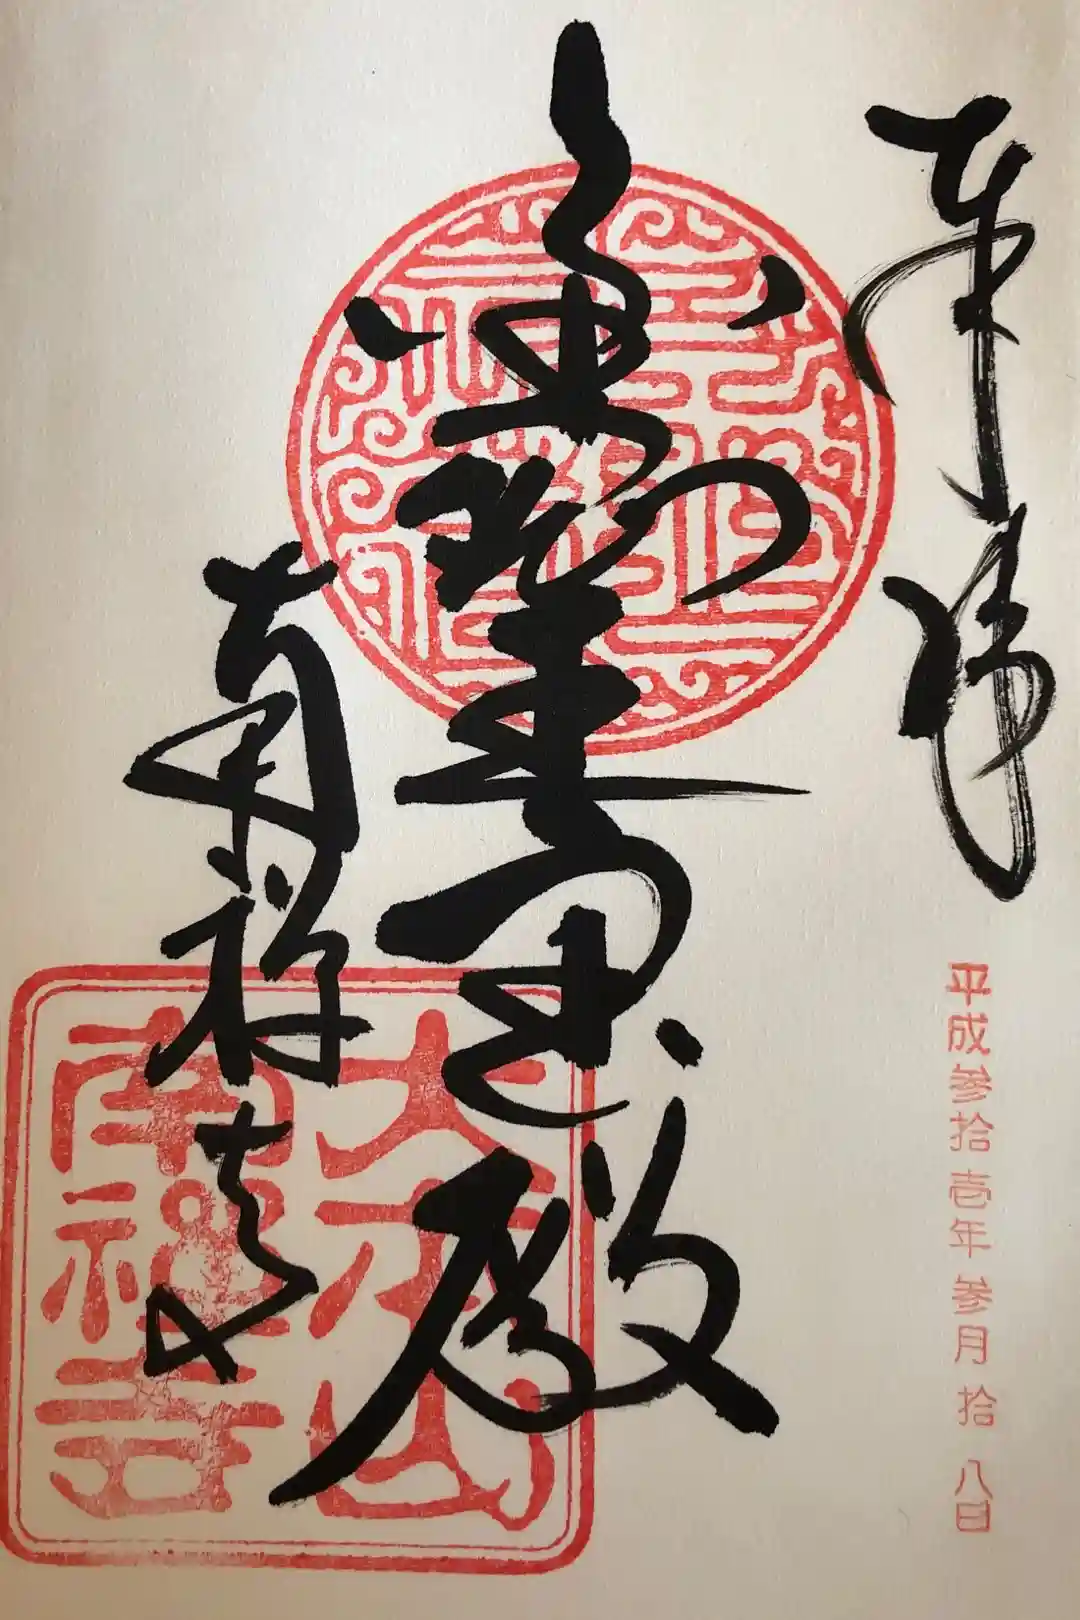 奉拝
平成参拾壱年参月拾八日
金剛王宝殿
南禅寺
大本山
南禪寺